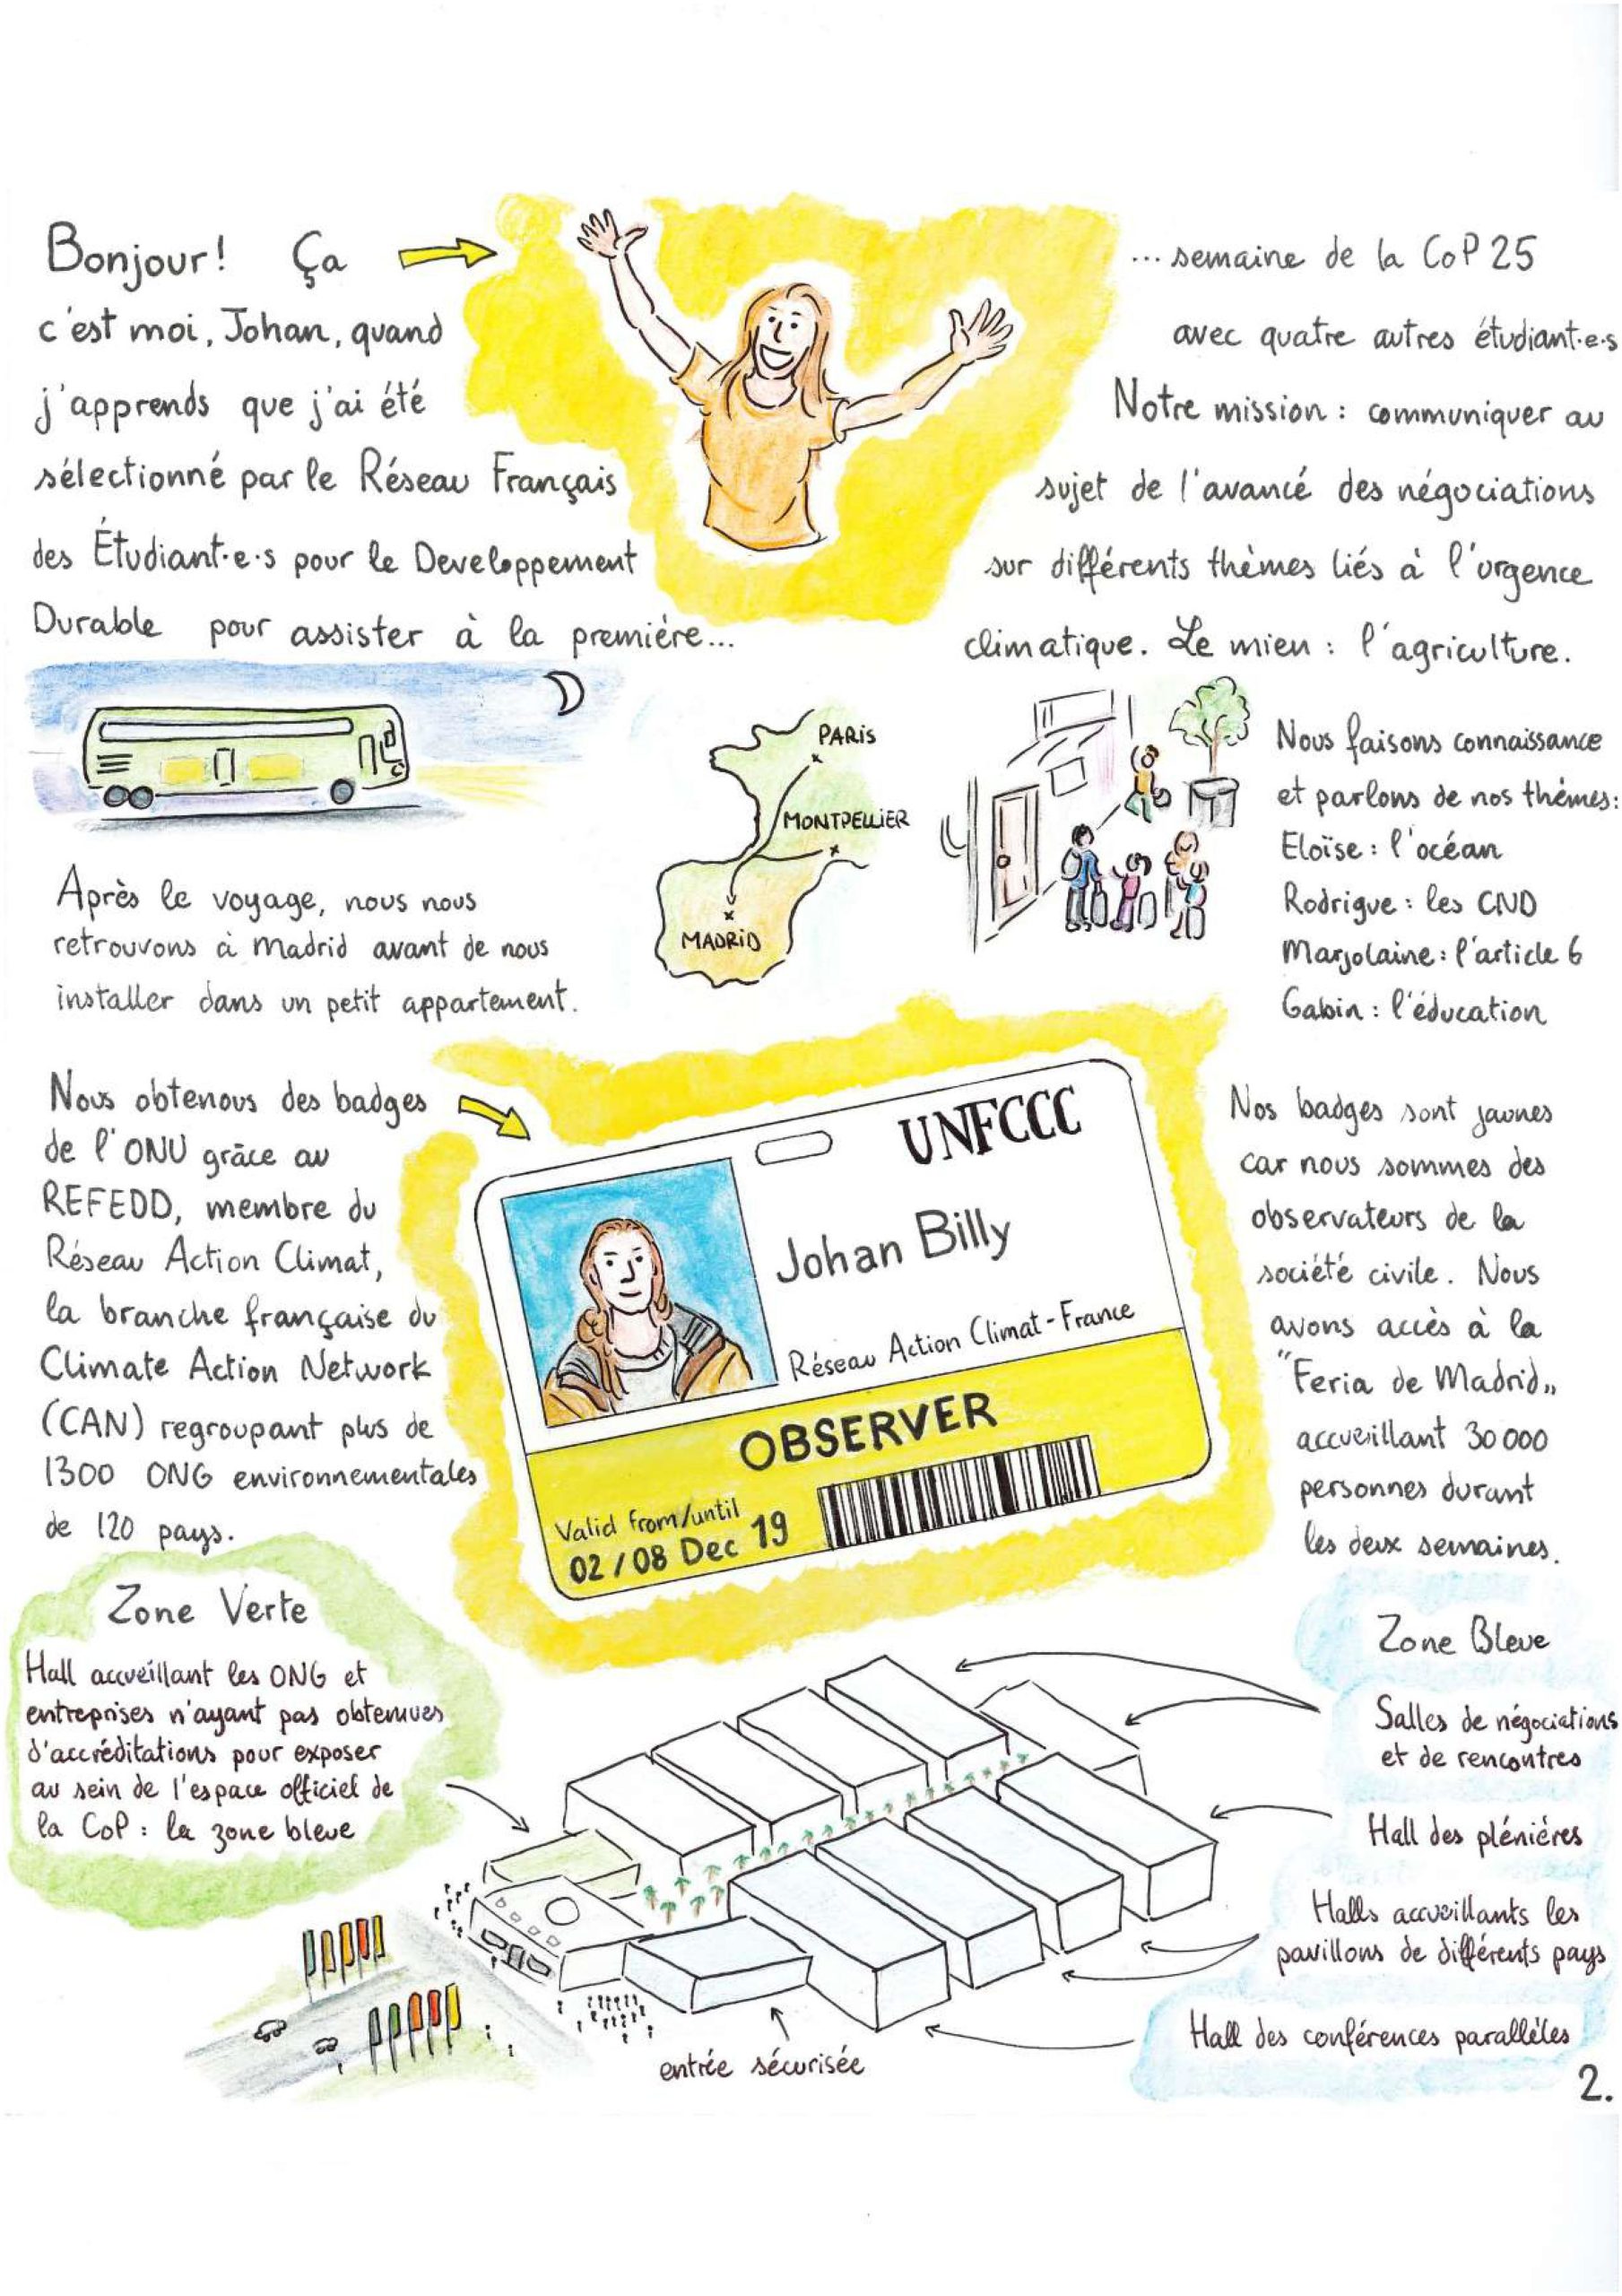 Bonjour! Ça
c'est moi, Johan, quand
j'apprends que j'ai été
sélectionné par le Réseau Français
des Étudiant·e·s pour le Developpement
Durable pour assister à la première...
... semaine de la CoP 25
avec quatre autres étudiant·e·s
Notre mission : communiquer au
sujet de l'avancé des négociations
sur différents thèmes liés à l'urgence
climatique. Le mien : l'agriculture.
PARIS
MONTPELLIER
MADRID
Après le voyage, nous nous
retrouvons à Madrid avant de nous
installer dans un petit appartement.
Nous faisons connaissance
et parlons de nos thèmes:
Eloïse : l'océan
Rodrigue : les CND
Marjolaine : l'article 6
Gabin : l'éducation
Nous obtenons des badges
de l'ONU grâce au
REFEDD, membre du
Réseau Action Climat,
la branche française du
Climate Action Network
(CAN) regroupant plus de
1300 ONG environnementales
de 120 pays.
UNFCCC
Johan Billy
Réseau Action Climat-France
OBSERVER
Valid from/until
02/08 Dec 19
Nos badges sont jaunes
car nous sommes des
observateurs de la
société civile. Nous
avons accès à la
"Feria de Madrid"
accueillant 30 000
personnes durant
les deux semaines.
Zone Verte
Hall accueillant les ONG et
entreprises n'ayant pas obtenues
d'accréditations pour exposer
au sein de l'espace officiel de
la CoP : la zone bleue
Zone Bleue
Salles de négociations
et de rencontres
Hall des plénières
Halls accueillants les
pavillons de différents pays
Hall des conférences parallèles
entrée sécurisée
2.